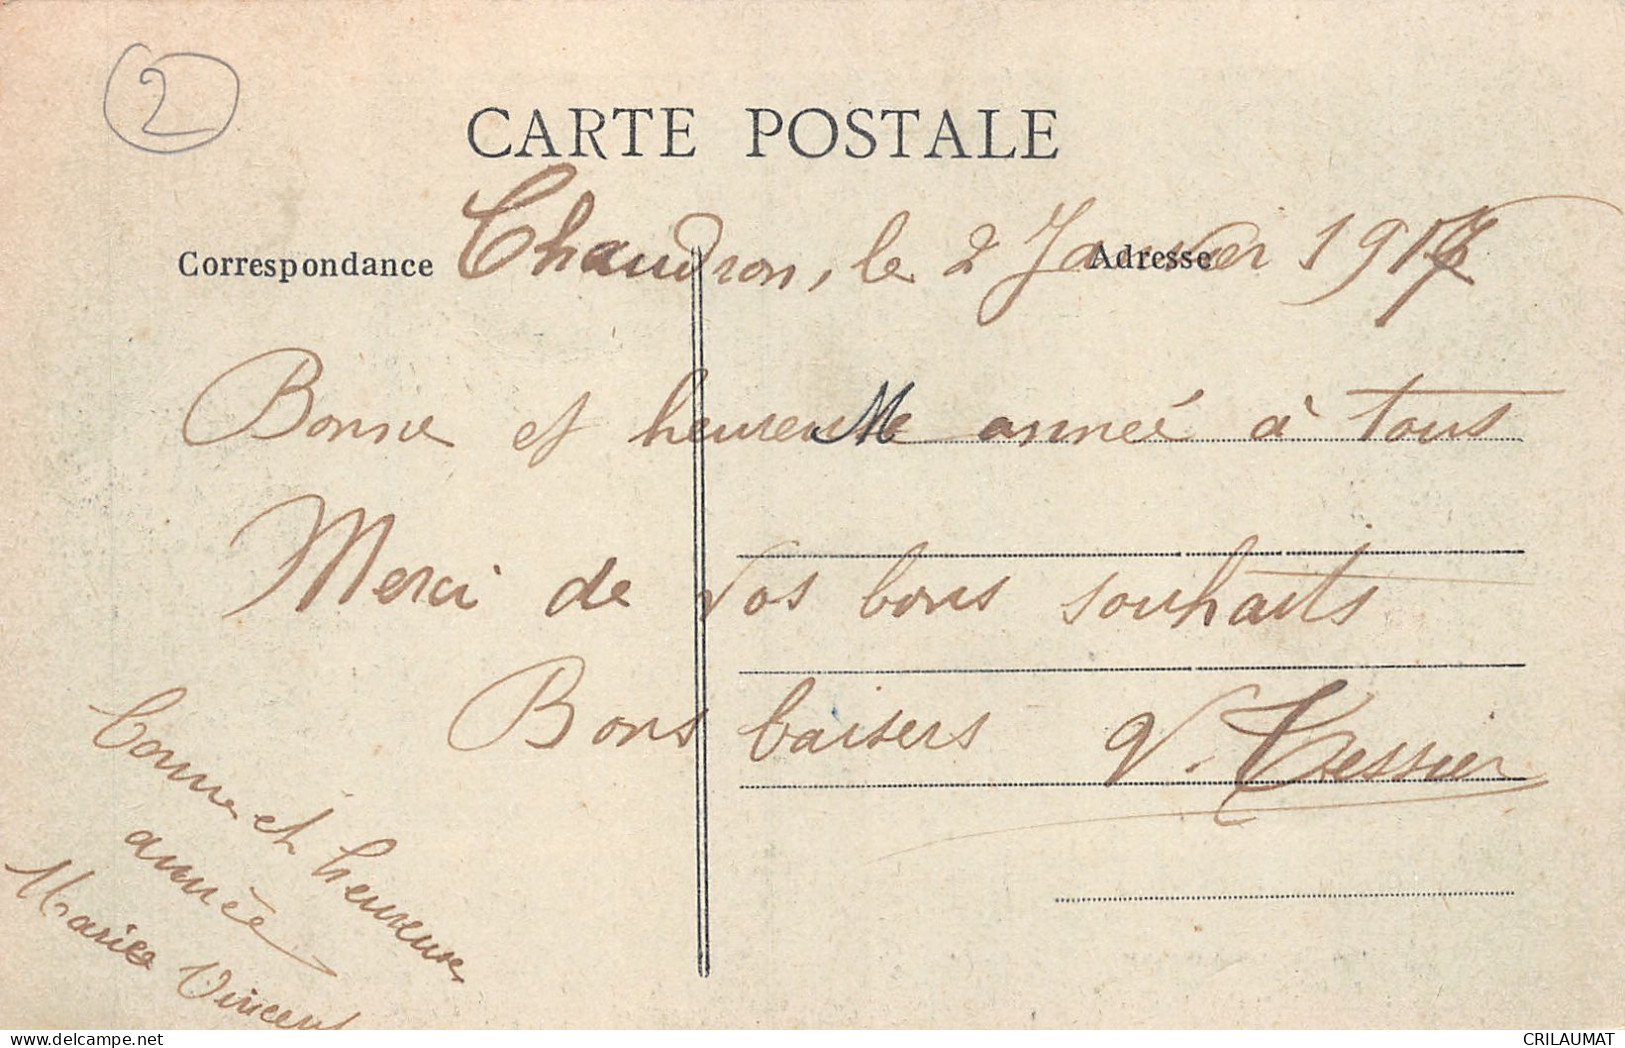 2
CARTE POSTALE
Correspondance
Adresse
Chaudron, le 2 Janvier 1917
Bonne et heureuse année à tous
M
Merci de vos bons souhaits
Bons baisers V. Tessier
bonne et heureuse
année
Marie Vincent
CRILAUMAT